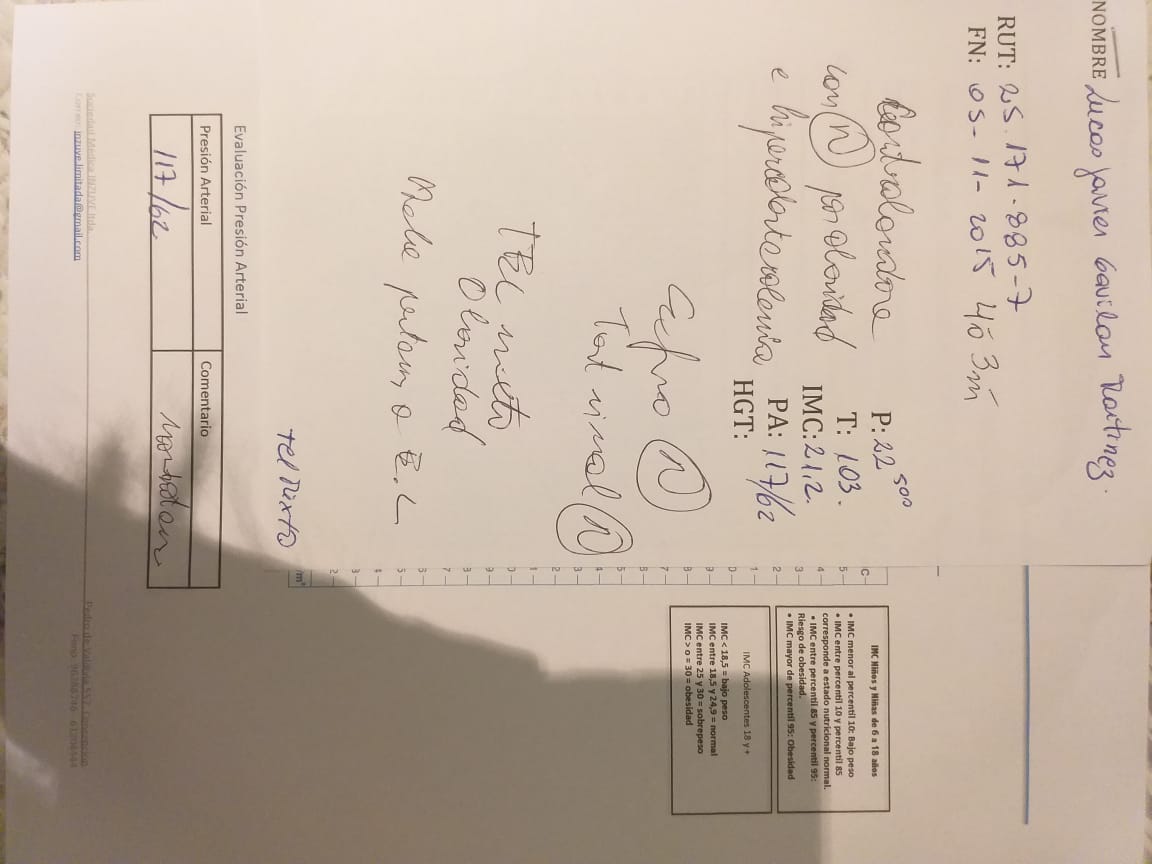 NOMBRE Lucas Javier Gavilan Martinez.
RUT: 25.171.885-7
FN: 05-11-2015 4ó 3m
Controlandose
con (N) por obesidad
e hipercolesterolemia
P: 22 500
T: 103.
IMC: 21,2.
PA: 117/62
HGT:
(N)
Test visual (N)
TEL mixto
Obesidad
a E.L
Tel Mixto
IMC Niños y Niñas de 6 a 18 años
• IMC menor al percentil 10: Bajo peso
• IMC entre percentil 10 y percentil 85
corresponde a estado nutricional normal.
• IMC entre percentil 85 y percentil 95:
Riesgo de obesidad.
• IMC mayor de percentil 95: Obesidad
IMC Adolescentes 18 y +
IMC < 18,5 = bajo peso
IMC entre 18,5 y 24,9 = normal
IMC entre 25 y 30 = sobrepeso
IMC > o = 30 = obesidad
/m²
Evaluación Presión Arterial
Presión Arterial Comentario
117/62
Sociedad Médica INZUVE ltda.
Correo: inzuve.limitada@gmail.com
Pedro de Valdivia 557, Concepción
Fono: